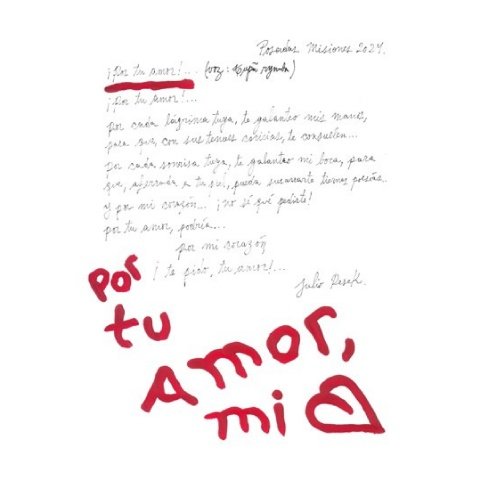 Posadas Misiones 2024.
¡Por tu amor!... (voz:
¡Por tu amor!...
por cada lágrima tuya, te galanteo mis manos,
para que, con sus tenues caricias, te consuelen...
por cada sonrisa tuya, te galanteo mi boca, para
que, aferrada a tu piel, pueda susurrarte tiernas poesías.
y por mi corazón... ¡no sé qué pedirte!
por tu amor, podría...
por mi corazón
¡te pido, tu amor!...
Julio Resek.
por
tu
Amor,
mi